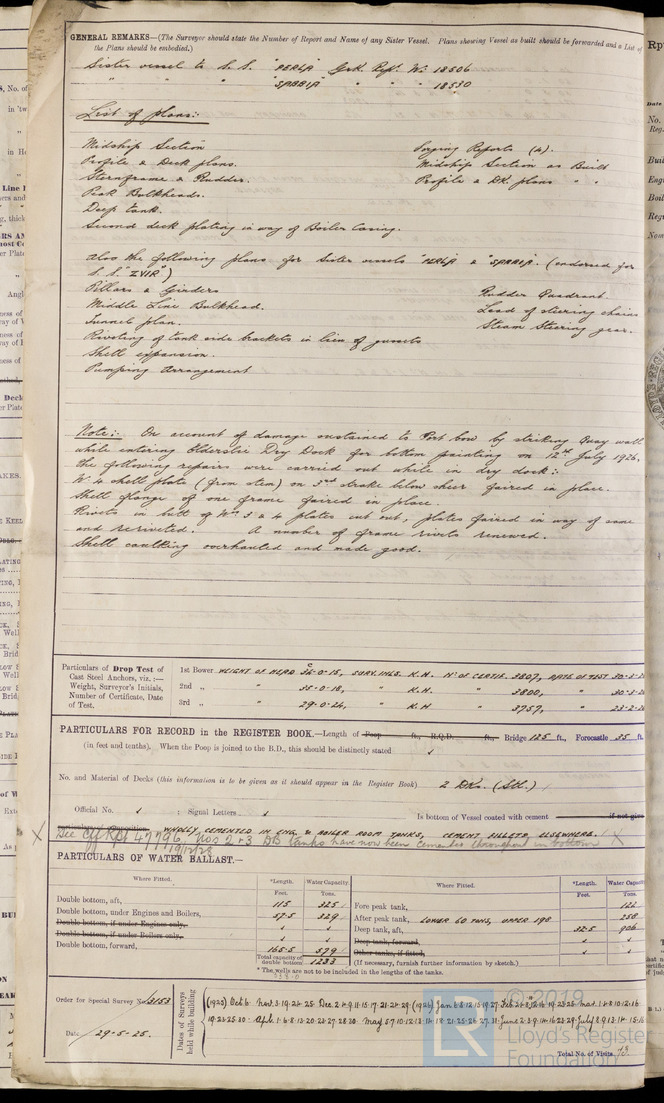 GENERAL REMARKS—(The Surveyor should state the Number of Report and Name of any Sister Vessel. Plans showing Vessel as built should be forwarded and a List of
the Plans should be embodied.)
Sister vessel to S.S. "PERLA" Grk. Rpt. No 18506
" " " "SPARTA" " " " 18530
List of plans:-
Midship Section Forging Reports (4).
Profile & Deck plans. Midship Section as Built
Sternframe & Rudder. Profile & DK. plans " "
Peak Bulkheads.
Deep tank.
Second deck plating in way of Boiler Casing.
Also the following plans for Sister vessels "PERLA" & (endorsed for
S.S. "ZVIR")
Pillars & Girders Rudder Quadrant.
Middle Line Bulkhead. Lead of steering chains
Tunnel plan. Steam Steering gear.
Riveting of tank side brackets in lieu of gussets
Shell expansion.
Pumping Arrangement
Note:- On account of damage sustained to Port bow by striking Quay wall
while entering Elderslie Dry Dock for bottom painting on 12th July 1926.
the following repairs were carried out while in dry dock:-
No 4 shell plate (from stem) on 3rd strake below sheer faired in place.
Shell flange of one frame faired in place.
Rivets in butt of Nos 3 & 4 plates cut out, plates faired in way of same
and reriveted. A number of frame rivets renewed.
Shell caulking overhauled and made good.
Particulars of Drop Test of
Cast Steel Anchors, viz.:—
Weight, Surveyor's Initials,
Number of Certificate, Date
of Test.
1st Bower WEIGHT OF HEAD 36-0-15, SURV. INLS. K.H. No OF CERTIF. 3807, DATE OF TEST 30-3-2
2nd " " 35-0-18, " K.H. " 3800, " 30-3-2
3rd " " 29-0-24, " K.H " 3757, " 23-2-2
PARTICULARS FOR RECORD in the REGISTER BOOK.—Length of Poop ft., R.Q.D. ft., Bridge 125 ft., Forecastle 35 ft.
(in feet and tenths). When the Poop is joined to the B.D., this should be distinctly stated
No. and Material of Decks (this information is to be given as it should appear in the Register Book) 2 DKs. (Stl.)
Official No. : Signal Letters Is bottom of Vessel coated with cement if not give
WHOLLY CEMENTED IN ENG. & BOILER ROOM TANKS, CEMENT FILLETS ELSEWHERE.
See Rpt 47796 Nos 2 & 3 DB tanks have now been cemented throughout in bottom
19/12/28
PARTICULARS OF WATER BALLAST.—
Where Fitted. *Length. Water Capacity. Where Fitted. *Length. Water Capacity
Feet. Tons. Feet. Tons.
Double bottom, aft, 115 325 Fore peak tank, 122
Double bottom, under Engines and Boilers, 57.5 329 After peak tank, LOWER 60 TONS, UPPER 198 258
Double bottom, if under Engines only, Deep tank, aft, 32.5 906
Double bottom, if under Boilers only, Deep tank, forward,
Double bottom, forward, 165.5 579 Other tanks, if fitted,
Total capacity of double bottom 1233 (If necessary, furnish further information by sketch.)
* The wells are not to be included in the lengths of the tanks.
338.0
Order for Special Survey No. 3153
Date 29-5-25.
Dates of Surveys held while building
(1925) Oct 6. Nov. 3.19.24.25 Dec. 2.4.9.11.15.17.21.24.29 (1926) Jan 6.8.12.13.19.27 Feb
19.23.25.30. Apl. 1.6.8.13.20.23.27.28.30. May 5.7.10.12.13.14.18.21.25.26.27.31. June 2.3.9.14.16.23.29. July 8.9.13.14.15.16
Total No. of Visits 73.
© 2019
LR
Lloyd's Register
Foundation